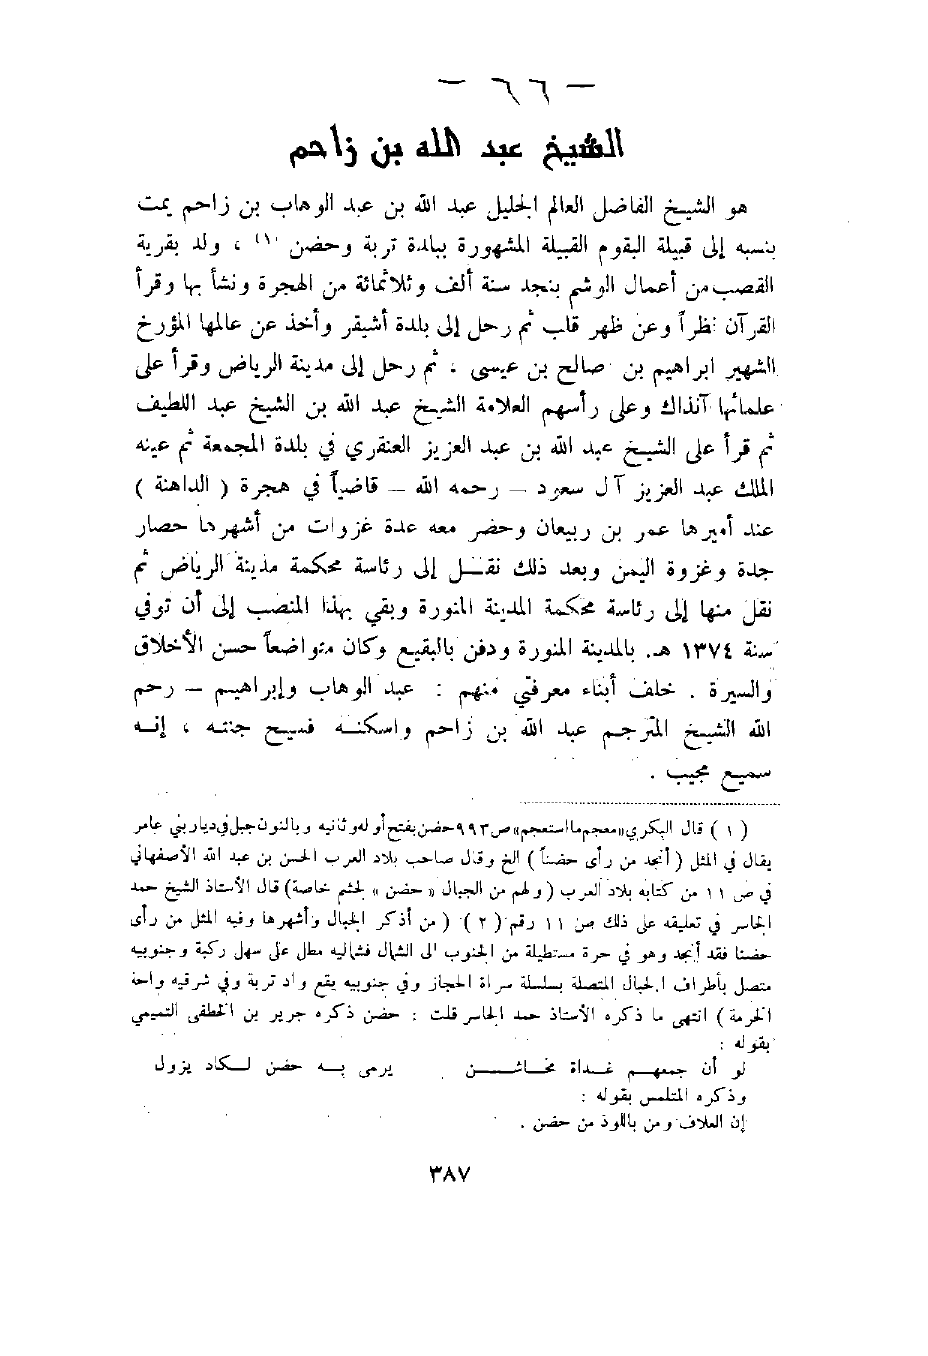 — ٦٦ —
الشيخ عبد الله بن زاحم
هو الشيخ الفاضل العالم الجليل عبد الله بن عبد الوهاب بن زاحم يمت
بنسبه إلى قبيلة البقوم القبيلة المشهورة ببلدة تربة وحضن (١) ، ولد بقرية
القصب من أعمال الوشم بنجد سنة ألف وثلاثمائة من الهجرة ونشأ بها وقرأ
القرآن نظراً وعن ظهر قلب ثم رحل إلى بلدة أشيقر وأخذ عن عالمها المؤرخ
الشهير ابراهيم بن صالح بن عيسى ، ثم رحل إلى مدينة الرياض وقرأ على
علمائها آنذاك وعلى رأسهم العلامة الشيخ عبد الله بن الشيخ عبد اللطيف
ثم قرأ على الشيخ عبد الله بن عبد العزيز العنقري في بلدة المجمعة ثم عينه
الملك عبد العزيز آل سعود – رحمه الله – قاضياً في هجرة ( الداهنة )
عند أميرها عمر بن ربيعان وحضر معه عدة غزوات من أشهرها حصار
جدة وغزوة اليمن وبعد ذلك نقل إلى رئاسة محكمة مدينة الرياض ثم
نقل منها إلى رئاسة محكمة المدينة المنورة وبقي بهذا المنصب إلى أن توفي
سنة ١٣٧٤ هـ. بالمدينة المنورة ودفن بالبقيع وكان متواضعاً حسن الأخلاق
والسيرة . خلف أبناء معرفتي منهم : عبد الوهاب وإبراهيم – رحم
الله الشيخ المترجم عبد الله بن زاحم واسكنه فسيح جنته ، إنه
سميع مجيب .
( ١ ) قال البكري «معجم ما استعجم» ص ٩٩٣ حضن بفتح أوله وثانيه وبالنون جبل في ديار بني عامر
يقال في المثل ( أنجد من رأى حضناً ) الخ وقال صاحب بلاد العرب الحسن بن عبد الله الأصفهاني
في ص ١١ من كتابه بلاد العرب ( ولهم من الجبال « حضن » لجشم خاصة) قال الأستاذ الشيخ حمد
الجاسر في تعليقه على ذلك ص ١١ رقم ( ٢ ) ( من أذكر الجبال وأشهرها وفيه المثل من رأى
حضنا فقد أنجد وهو في حرة مستطيلة من الجنوب الى الشمال فشماليه مطل على سهل ركبة وجنوبيه
متصل بأطراف الجبال المتصلة بسلسلة سراة الحجاز وفي جنوبيه يقع واد تربة وفي شرقيه واحة
الخرمة ) انتهى ما ذكره الأستاذ حمد الجاسر قلت : حضن ذكره جرير بن الخطفى التميمي
بقوله :
لو أن جمعهم غداة مخاشن يرمى به حضن لكاد يزول
وذكره المتلمس بقوله :
إن العلاف ومن باللوذ من حضن .
٣٨٧